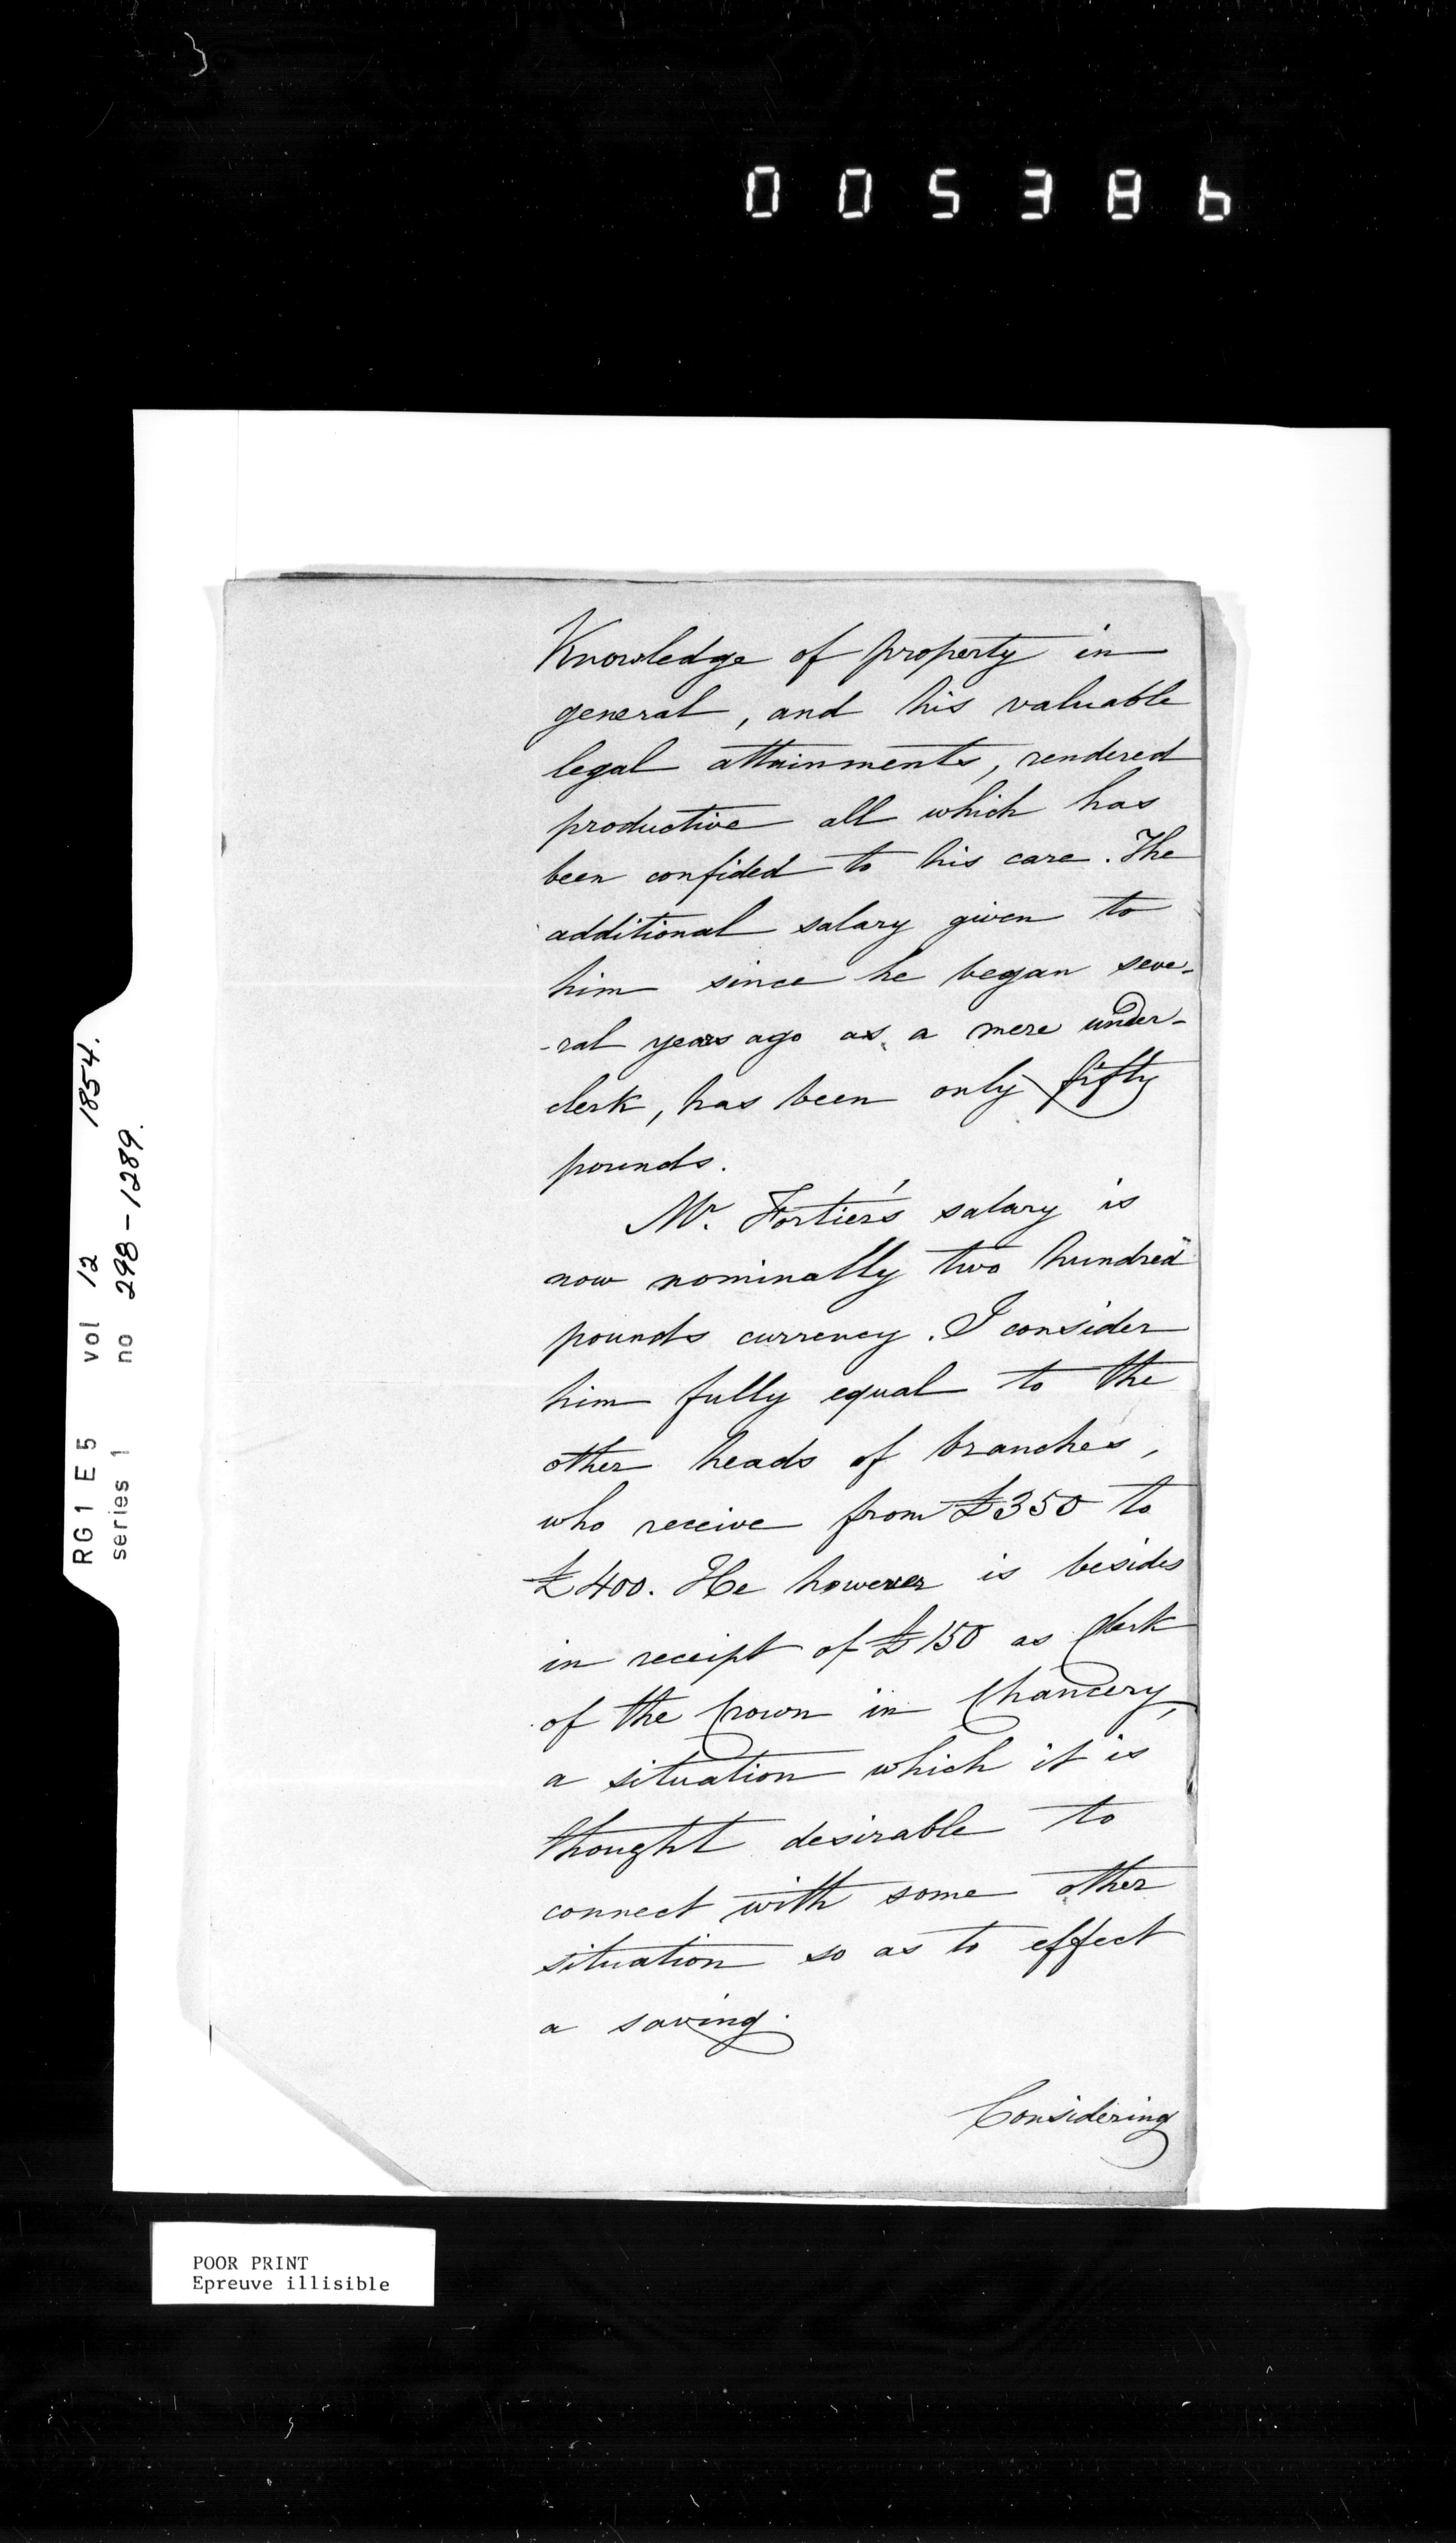 005386
RG1 E5 vol 12 1854.
series 1 no 298-1289.
Knowledge of property in
general, and his valuable
legal attainments, rendered
productive all which has
been confided to his care. The
additional salary given to
him since he began seve-
-ral years ago as a mere under-
clerk, has been only fifty
pounds.
Mr. Fortier's salary is
now nominally two hundred
pounds currency. I consider
him fully equal to the
other heads of branches,
who receive from £350 to
£400. He however is besides
in receipt of £150 as Clerk
of the Crown in Chancery,
a situation which it is
thought desirable to
connect with some other
situation so as to effect
a saving.
Considering
POOR PRINT
Epreuve illisible